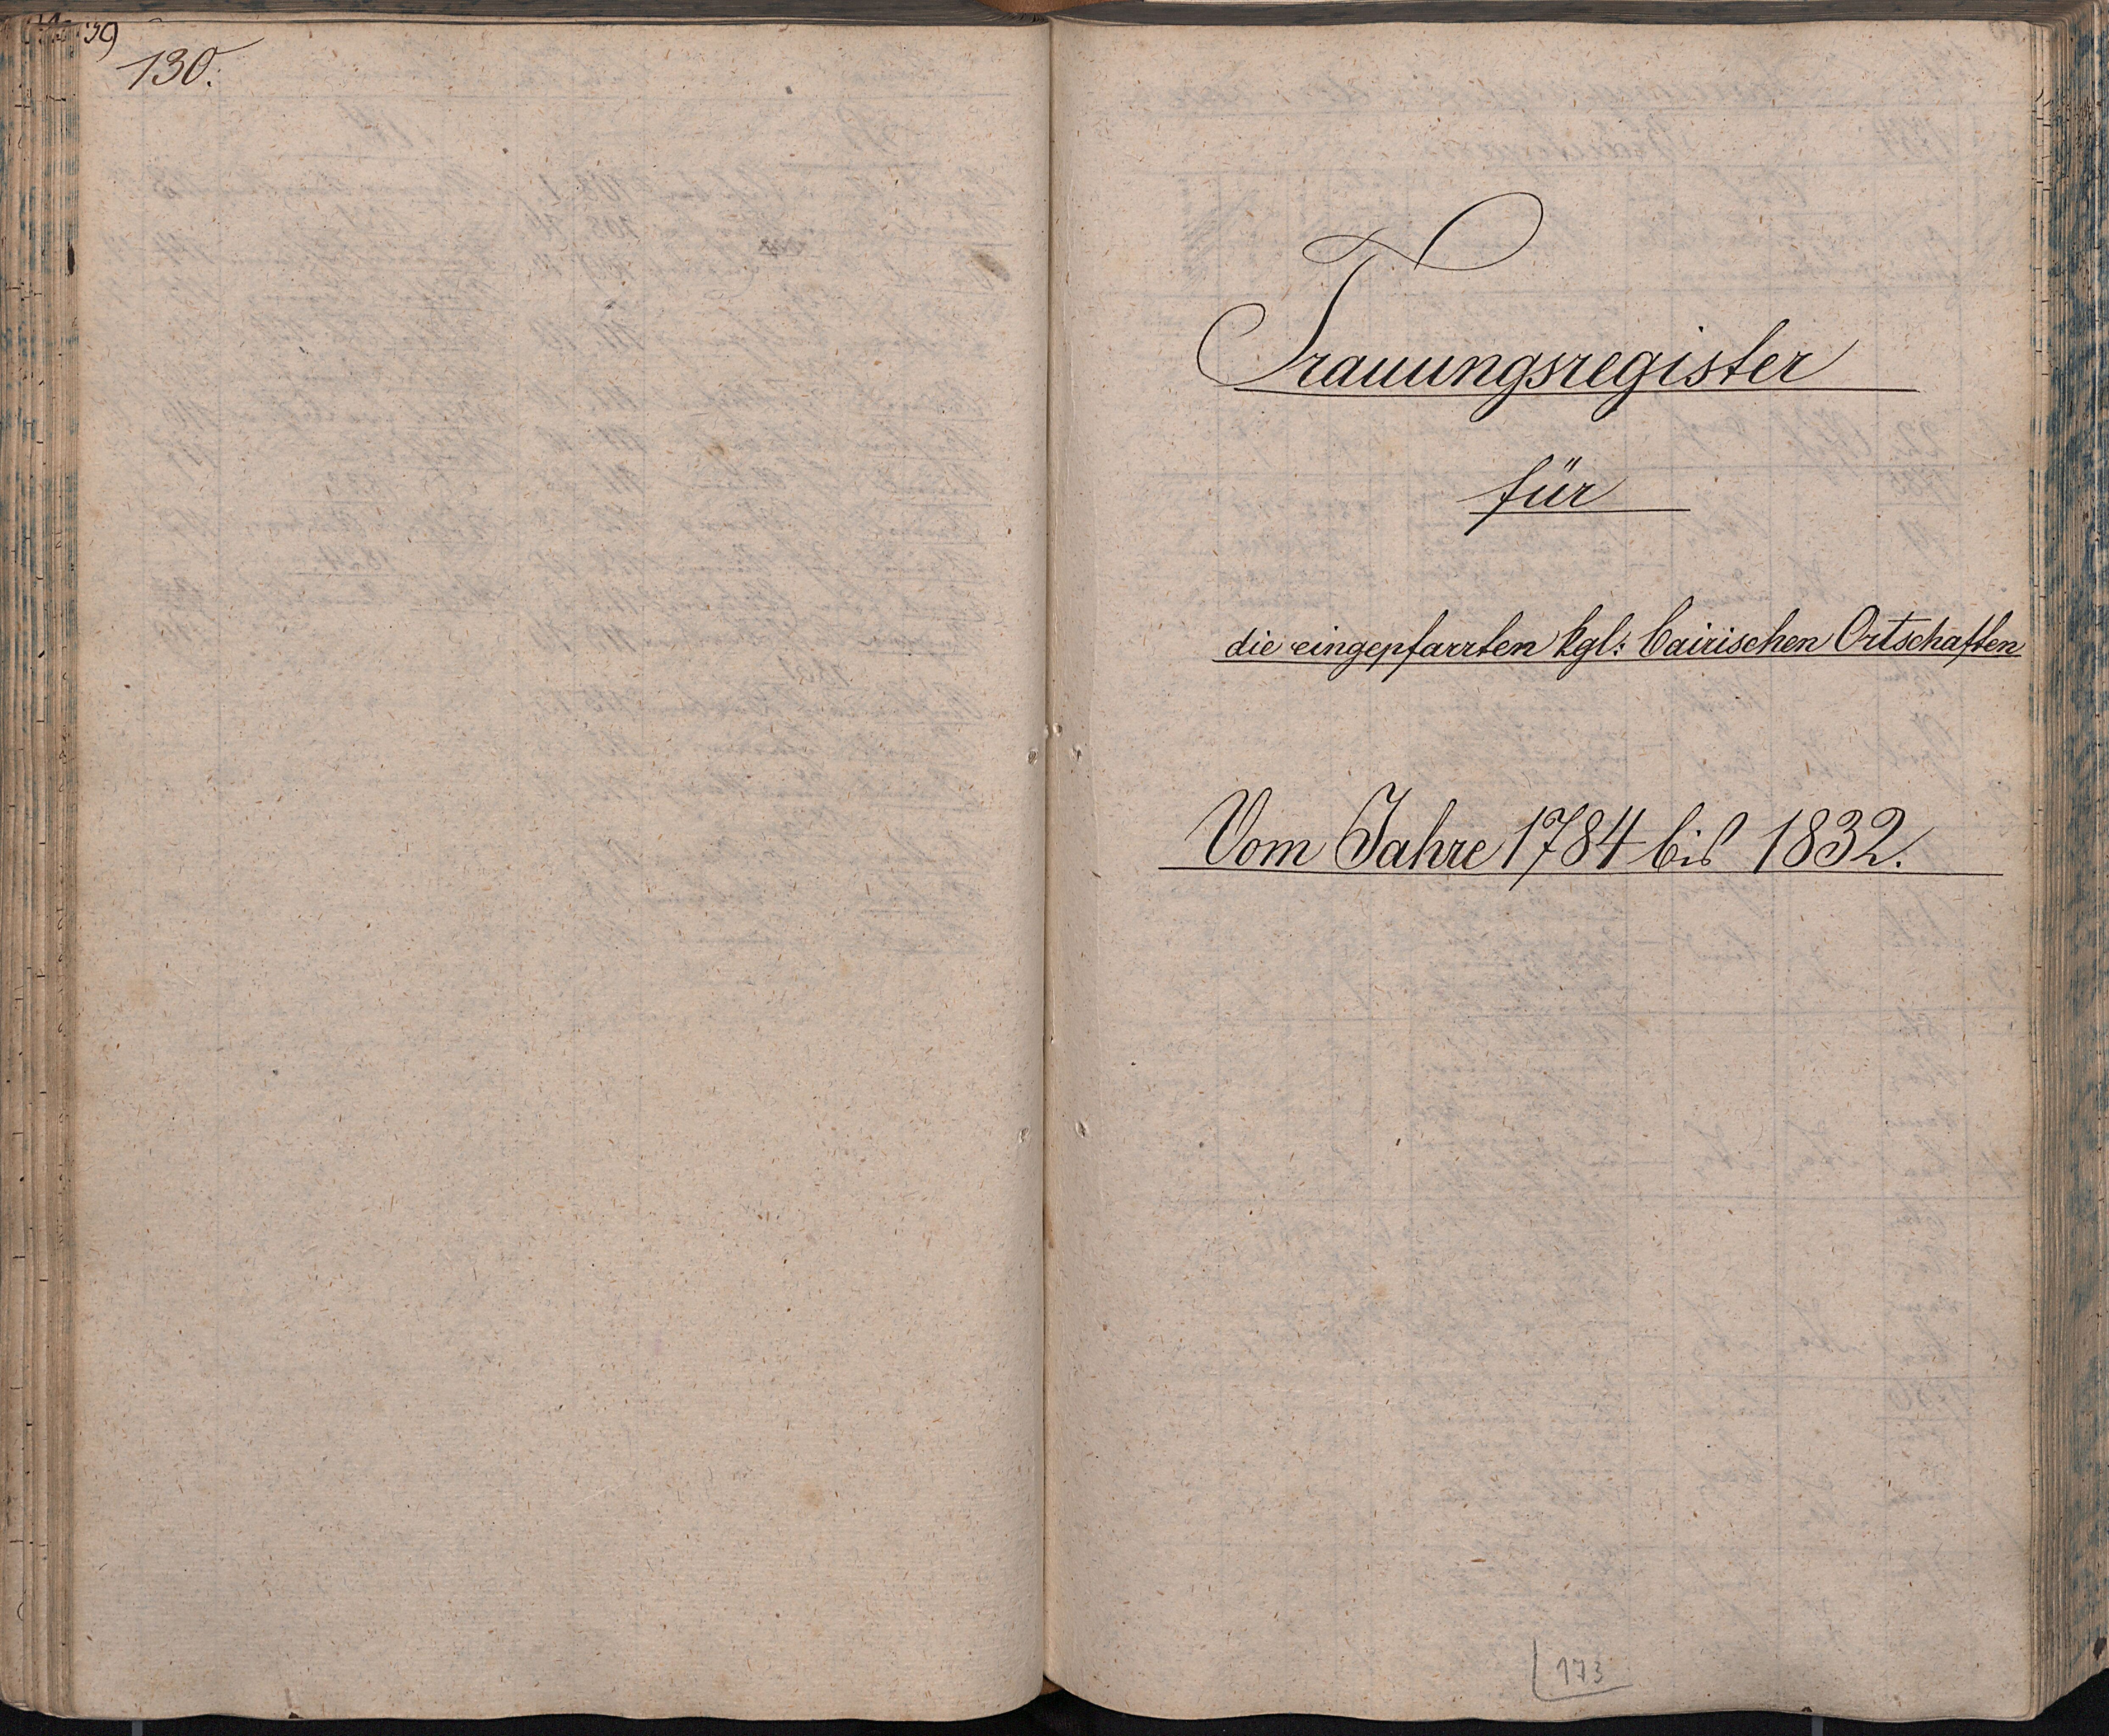 130.
Trauungsregister
für
die eingepfarrten kgl: bairischen Ortschaften
Vom Jahre 1784 bis 1832.
173